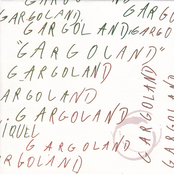 GARGO
GARGOLAND
GARGOLAND
GARGO
"GARGOLAND"
GARGOLAND
ARGOLAND
GARGOLAND
IQUEL
GARGOLAND
RGOLAND
GARGOLAND
GARGOLAND